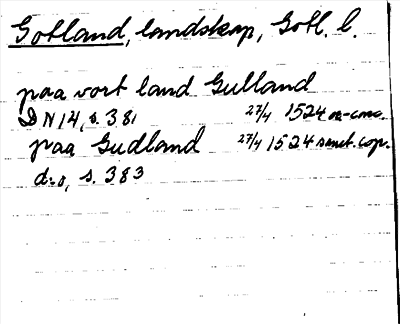 Gotland, landskap, Gotl. l.
paa vort land Gulland
DN 14, s. 381 27/4 1524 or-conc.
paa Gudland 27/4 1524 samt. cop.
d:o, s. 383